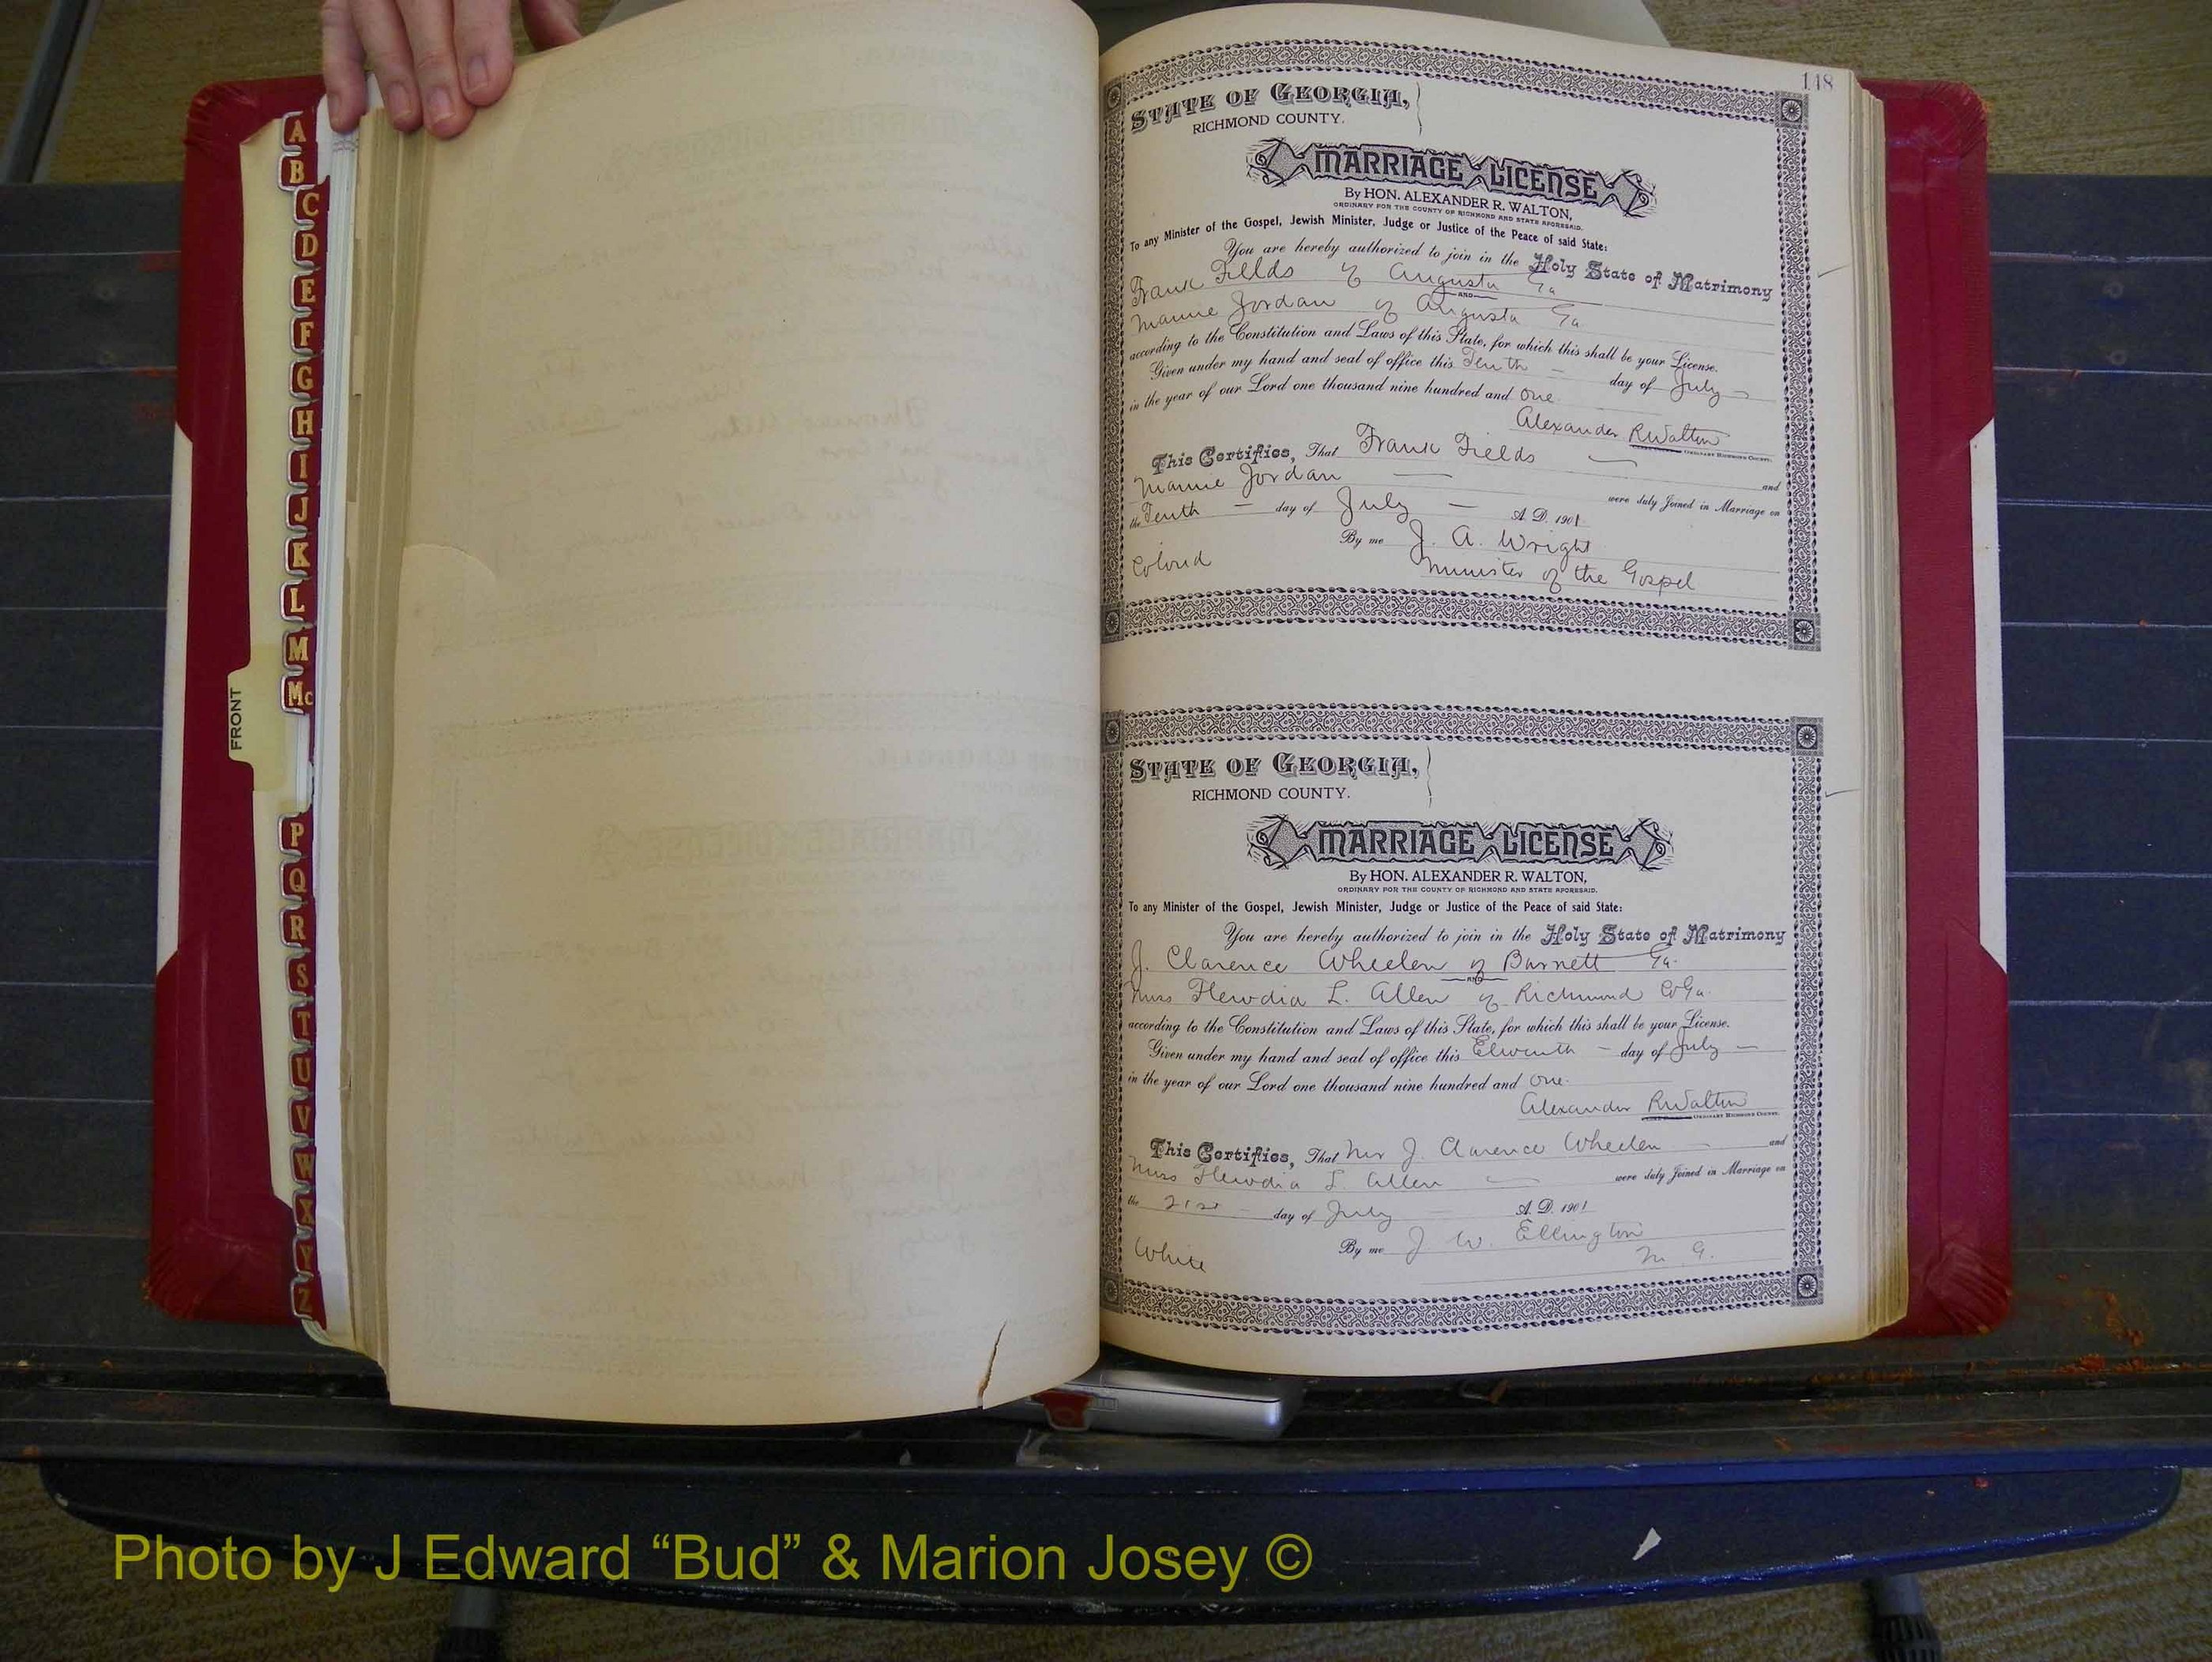 A
B
C
D
E
F
G
H
I
J
K
L
M
Mc
FRONT
P
Q
R
S
T
U
V
W
X
Y
Z
118
STATE OF GEORGIA,
RICHMOND COUNTY.
MARRIAGE LICENSE
By HON. ALEXANDER R. WALTON,
ORDINARY FOR THE COUNTY OF RICHMOND AND STATE AFORESAID.
To any Minister of the Gospel, Jewish Minister, Judge or Justice of the Peace of said State:
You are hereby authorized to join in the Holy State of Matrimony
Frank Fields of Augusta Ga
AND
Mamie Jordan of Augusta Ga
according to the Constitution and Laws of this State, for which this shall be your License.
Given under my hand and seal of office this Tenth day of July
in the year of our Lord one thousand nine hundred and one
Alexander R Walton
ORDINARY RICHMOND COUNTY.
This Certifies, That Frank Fields and
Mamie Jordan were duly Joined in Marriage on
the Tenth day of July A. D. 1901.
By me J. A. Wright
Colord Minister of the Gospel
STATE OF GEORGIA,
RICHMOND COUNTY.
MARRIAGE LICENSE
By HON. ALEXANDER R. WALTON,
ORDINARY FOR THE COUNTY OF RICHMOND AND STATE AFORESAID.
To any Minister of the Gospel, Jewish Minister, Judge or Justice of the Peace of said State:
You are hereby authorized to join in the Holy State of Matrimony
J. Clarence Wheelen of Barnett Ga.
AND
Miss L. Allen of Richmond Co Ga.
according to the Constitution and Laws of this State, for which this shall be your License.
Given under my hand and seal of office this Eleventh day of July
in the year of our Lord one thousand nine hundred and one.
Alexander R Walton
ORDINARY RICHMOND COUNTY.
This Certifies, That Mr J. Clarence Wheelen and
Miss L. Allen were duly Joined in Marriage on
the 21st day of July A. D. 1901
By me J W. Ellington
White M. G.
Photo by J Edward “Bud” & Marion Josey ©